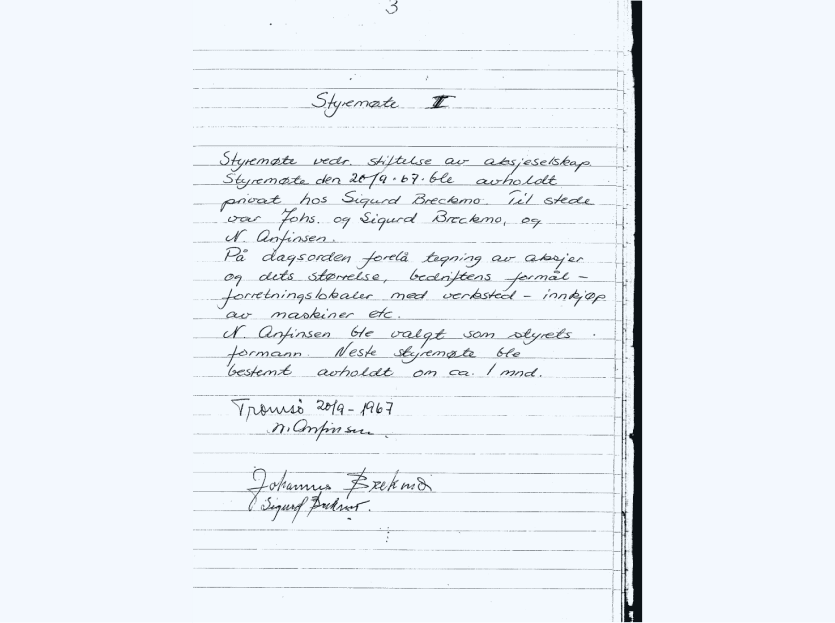 3
Styremøte II
Styremøte vedr. stiftelse av aksjeselskap.
Styremøte den 20/9-67. ble avholdt
privat hos Sigurd Breckmo. Til stede
var Johs. og Sigurd Breckmo, og
N. Anfinsen.
På dagsorden forelå tegning av aksjer
og dets størrelse, bedriftens formål -
forretningslokaler med verksted - innkjøp
av maskiner etc.
N. Anfinsen ble valgt som styrets
formann. Neste styremøte ble
bestemt avholdt om ca. 1 mnd.
Tromsö 20/9-1967
N. Anfinsen.
Johannes Brekmo
Sigurd Brekmo.